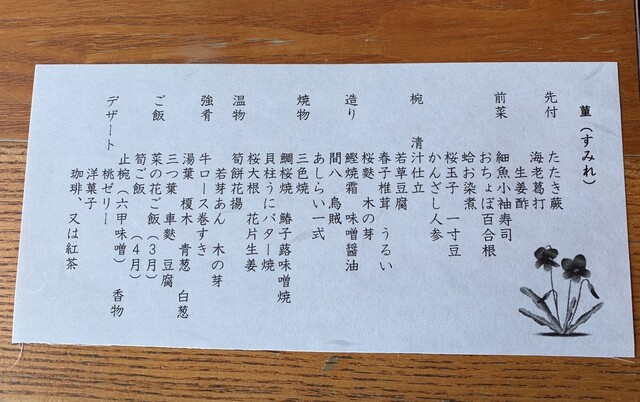 菫(すみれ)
先付 たたき蕨
海老葛打
生姜酢
前菜 細魚小袖寿司
おちょぼ百合根
蛤お染煮
桜玉子 一寸豆
かんざし人参
椀 清汁仕立
若草豆腐
春子椎茸 うるい
桜麩 木の芽
造り 鰹焼霜 味噌醤油
間八 烏賊
あしらい一式
焼物 三色焼
鯛桜焼 鰆子蕗味噌焼
貝柱うにバター焼
桜大根 花片生姜
温物 筍餅花揚
若芽あん 木の芽
強肴 牛ロース巻すき
湯葉 榎木 青葱 白葱
三つ葉 車麩 豆腐
ご飯 菜の花ご飯(3月)
筍ご飯 (4月)
止椀(六甲味噌) 香物
デザート 桃ゼリー
洋菓子
珈琲、又は紅茶